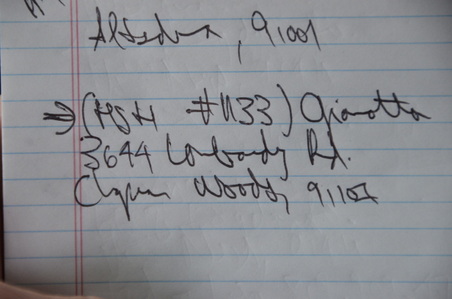 Altadena, 91001
⇒ (HSH #1133) Gianotta
3644 Lombardy Rd.
Woods, 91107